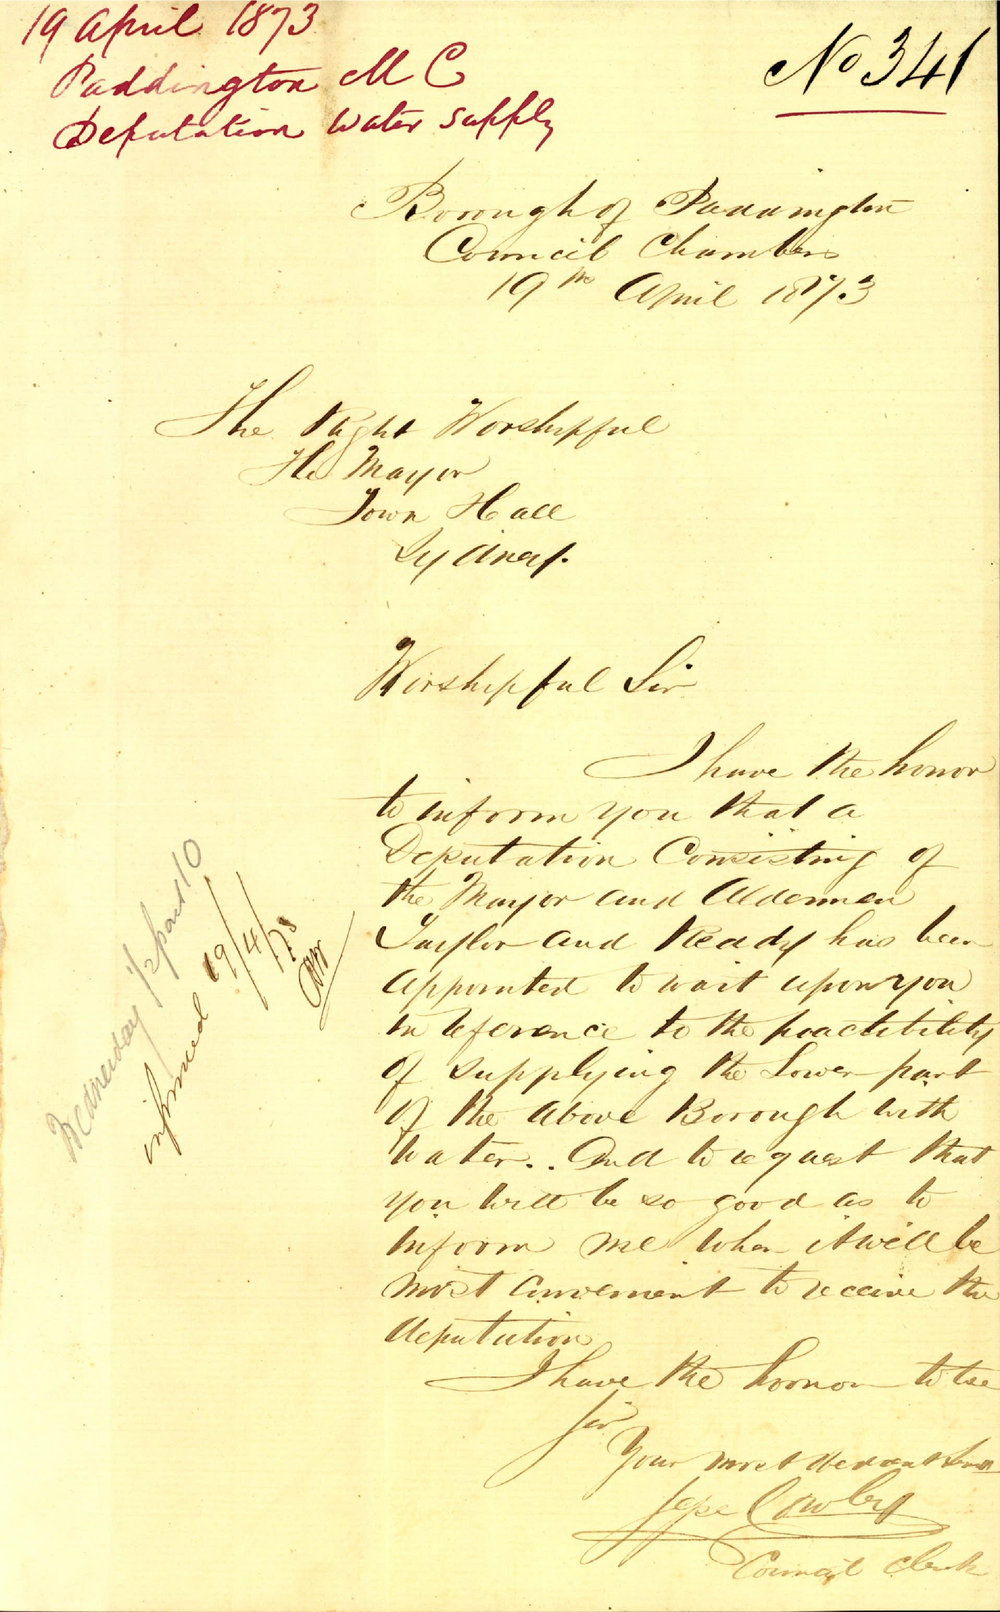 19 April 1873
Paddington M C
Deputation water supply
No 341
Borough of Paddington
Council Chambers
19th April 1873
The Right Worshipful
The Mayor
Town Hall
Sydney.
Worshipful Sir
I have the honor
to inform you that a
Deputation Consisting of
the Mayor and Aldermen
Taylor and Ready has been
appointed to wait upon you
in reference to the practibility
of supplying the Lower part
of the above Borough with
Water.. And to request that
you will be so good as to
inform me when it will be
most convenient to receive the
deputation
I have the honor to be
Sir
Your most obedient Servt
Jesse Cowley
Council Clerk
Wednesday 1/2 past 10
informed 19/4/73